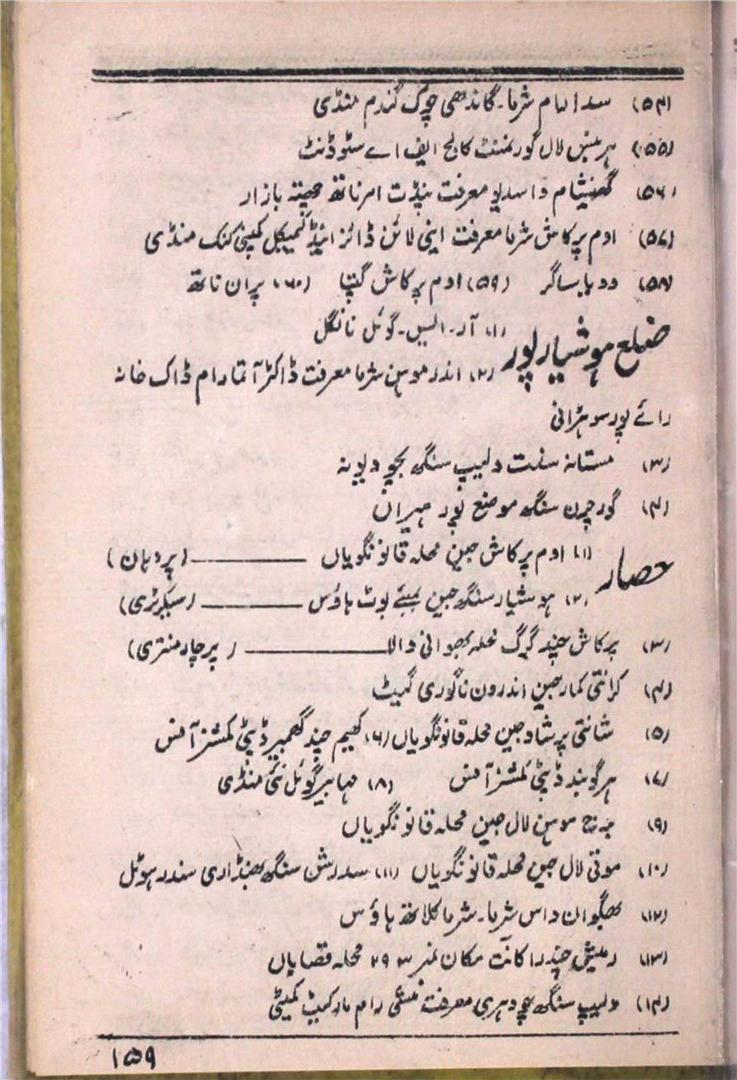 (۵۴) سدا رام شرما۔ گاندھی چوک گندم منڈی
(۵۵) ہربنس لال گورنمنٹ کالج ایف اے سٹوڈنٹ
(۵۶) گھنیشام داسدیو معرفت پنڈت امرناتھ چھتہ بازار
(۵۷) اوم پرکاش شرما معرفت اینی لائن ڈائز اینڈ کیمیکل کمپنی کنک منڈی
(۵۸) ودیا ساگر (۵۹) اوم پرکاش گپتا (۶۰) پران ناتھ
ضلع ہوشیارپور (۱) آر۔ ایس۔ گوئل نانگل
(۲) اندر موہن شرما معرفت ڈاکٹر آتما رام ڈاک خانہ
رائے پور سوہڑانی
(۳) مستانہ سنت دلیپ سنگھ
(۴) گورچرن سنگھ موضع نور
حصار (۱) اوم پرکاش جین محلہ قانونگویاں ——— (پردہان)
(۲) ہوشیار سنگھ جین بمبئے بوٹ ہاؤس ——— (سیکرٹری)
(۳) پرکاش چند گرگ محلہ بھوانی والا ——— (پرچار منتری)
(۴) کرانتی کمار جین اندرون ناگوری گیٹ
(۵) شانتی پرشاد جین محلہ قانونگویاں (۶) کھیم چند گھمبیر ڈپٹی کمشنر آفس
(۷) ہرگوبند ڈپٹی کمشنر آفس (۸) مہابیر گوئل نئی منڈی
(۹) برج موہن لال جین محلہ قانونگویاں
(۱۰) موتی لال جین محلہ قانونگویاں (۱۱) سدرشن سنگھ بھنڈاری سندر ہوٹل
(۱۲) بھگوان داس شرما۔ شرما کلاتھ ہاؤس
(۱۳) رمیش چندرا کانت مکان نمبر ۲۹۳ محلہ قصایاں
(۱۴) دلیپ سنگھ چودہری معرفت منشی رام مارکیٹ کمیٹی
۱۵۹